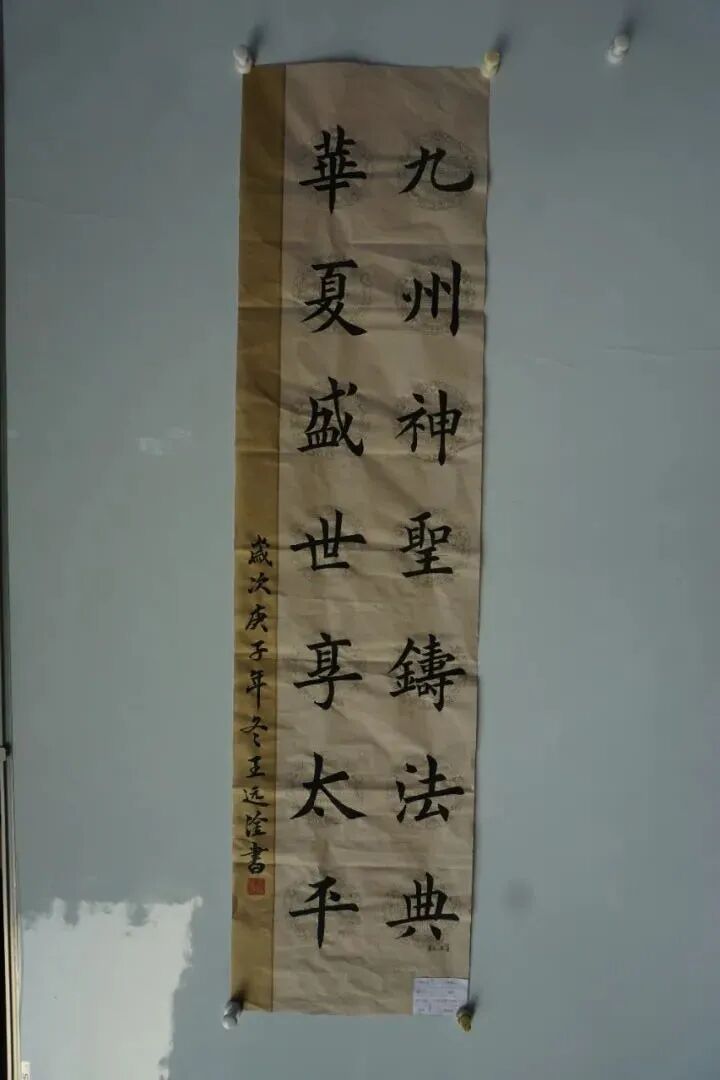 九州神聖鑄法典
華夏盛世享太平
歲次庚子年冬王远淦書